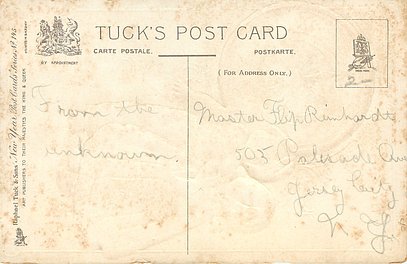 TUCK'S POST CARD
CARTE POSTALE.
POSTKARTE.
BY APPOINTMENT
(FOR ADDRESS ONLY.)
Raphael Tuck & Sons' "New Year" Post Cards Series
ART PUBLISHERS TO THEIR MAJESTIES THE KING & QUEEN
From the
unknown.
Master Flip Reinhardt
505 Palisade Ave
Jersey City
N. J.